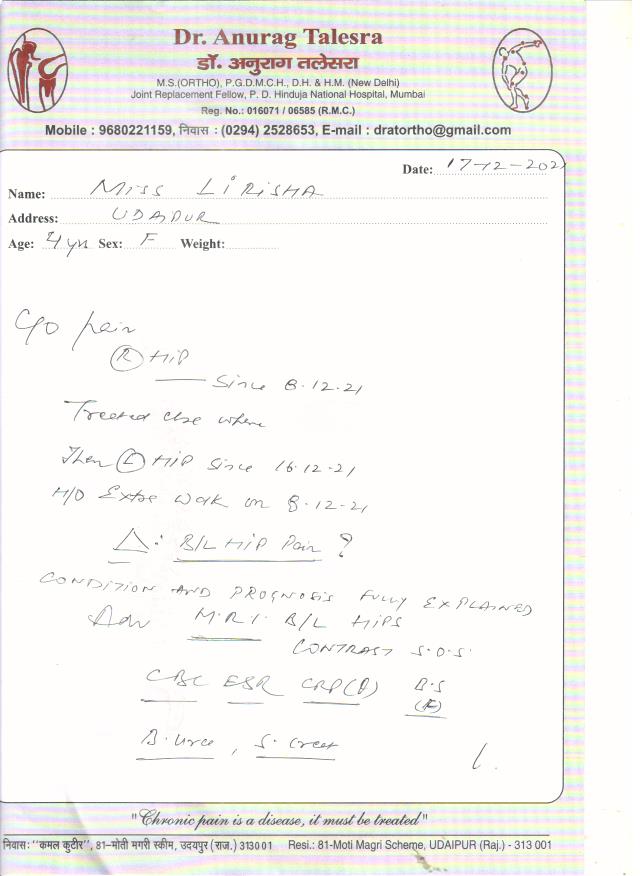 Dr. Anurag Talesra
डॉ. अनुराग तलेसरा
M.S.(ORTHO), P.G.D.M.C.H., D.H. & H.M. (New Delhi)
Joint Replacement Fellow, P. D. Hinduja National Hospital, Mumbai
Reg. No.: 016071 / 06585 (R.M.C.)
Mobile : 9680221159, निवास : (0294) 2528653, E-mail : dratortho@gmail.com
Date: 17-12-202
Name: MISS LIRISHA
Address: UDAIPUR
Age: 4 yrs Sex: F Weight:
C/O pain
(R) HIP
Since 8.12.21
Treated else where
Then (L) HIP since 16.12.21
H/O Extra walk on 8.12.21
Δ: B/L HIP Pain ?
CONDITION AND PROGNOSIS FULLY EXPLAINED
Adv M.R.I. B/L HIPS
CONTRAST S.O.S.
CBC ESR CRP B.S
(F)
B. Urea, S. Creat
"Chronic pain is a disease, it must be treated"
निवास: "कमल कुटीर", 81-मोती मगरी स्कीम, उदयपुर (राज.) 313001 Resi.: 81-Moti Magri Scheme, UDAIPUR (Raj.) - 313 001